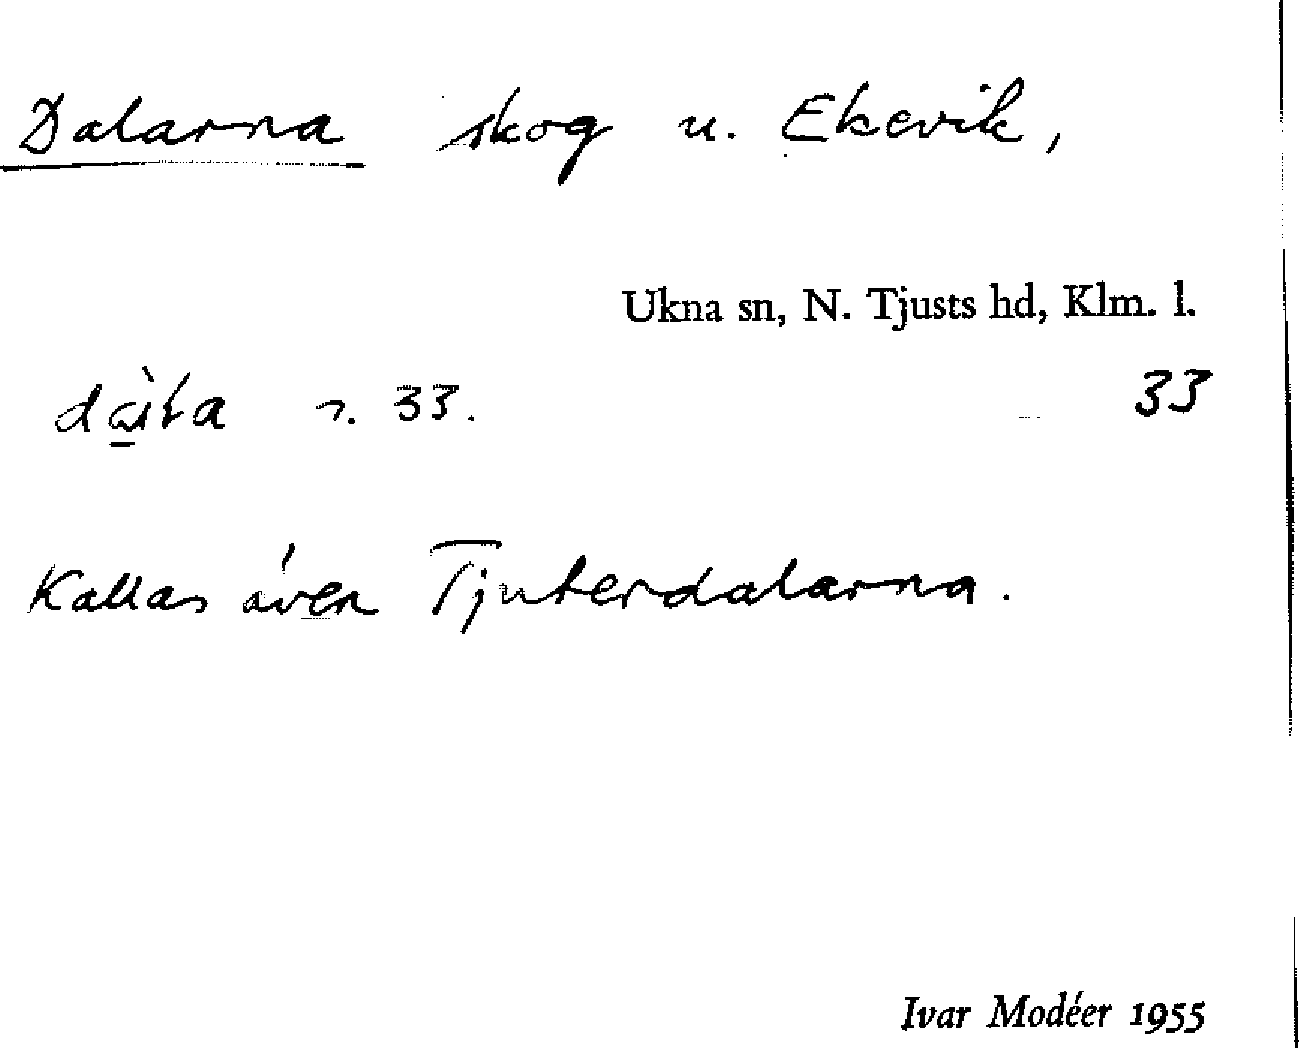 Dalarna skog u. Ekevik,
Ukna sn, N. Tjusts hd, Klm. l.
33. 33
Kallas även Tjuterdalarna.
Ivar Modéer 1955